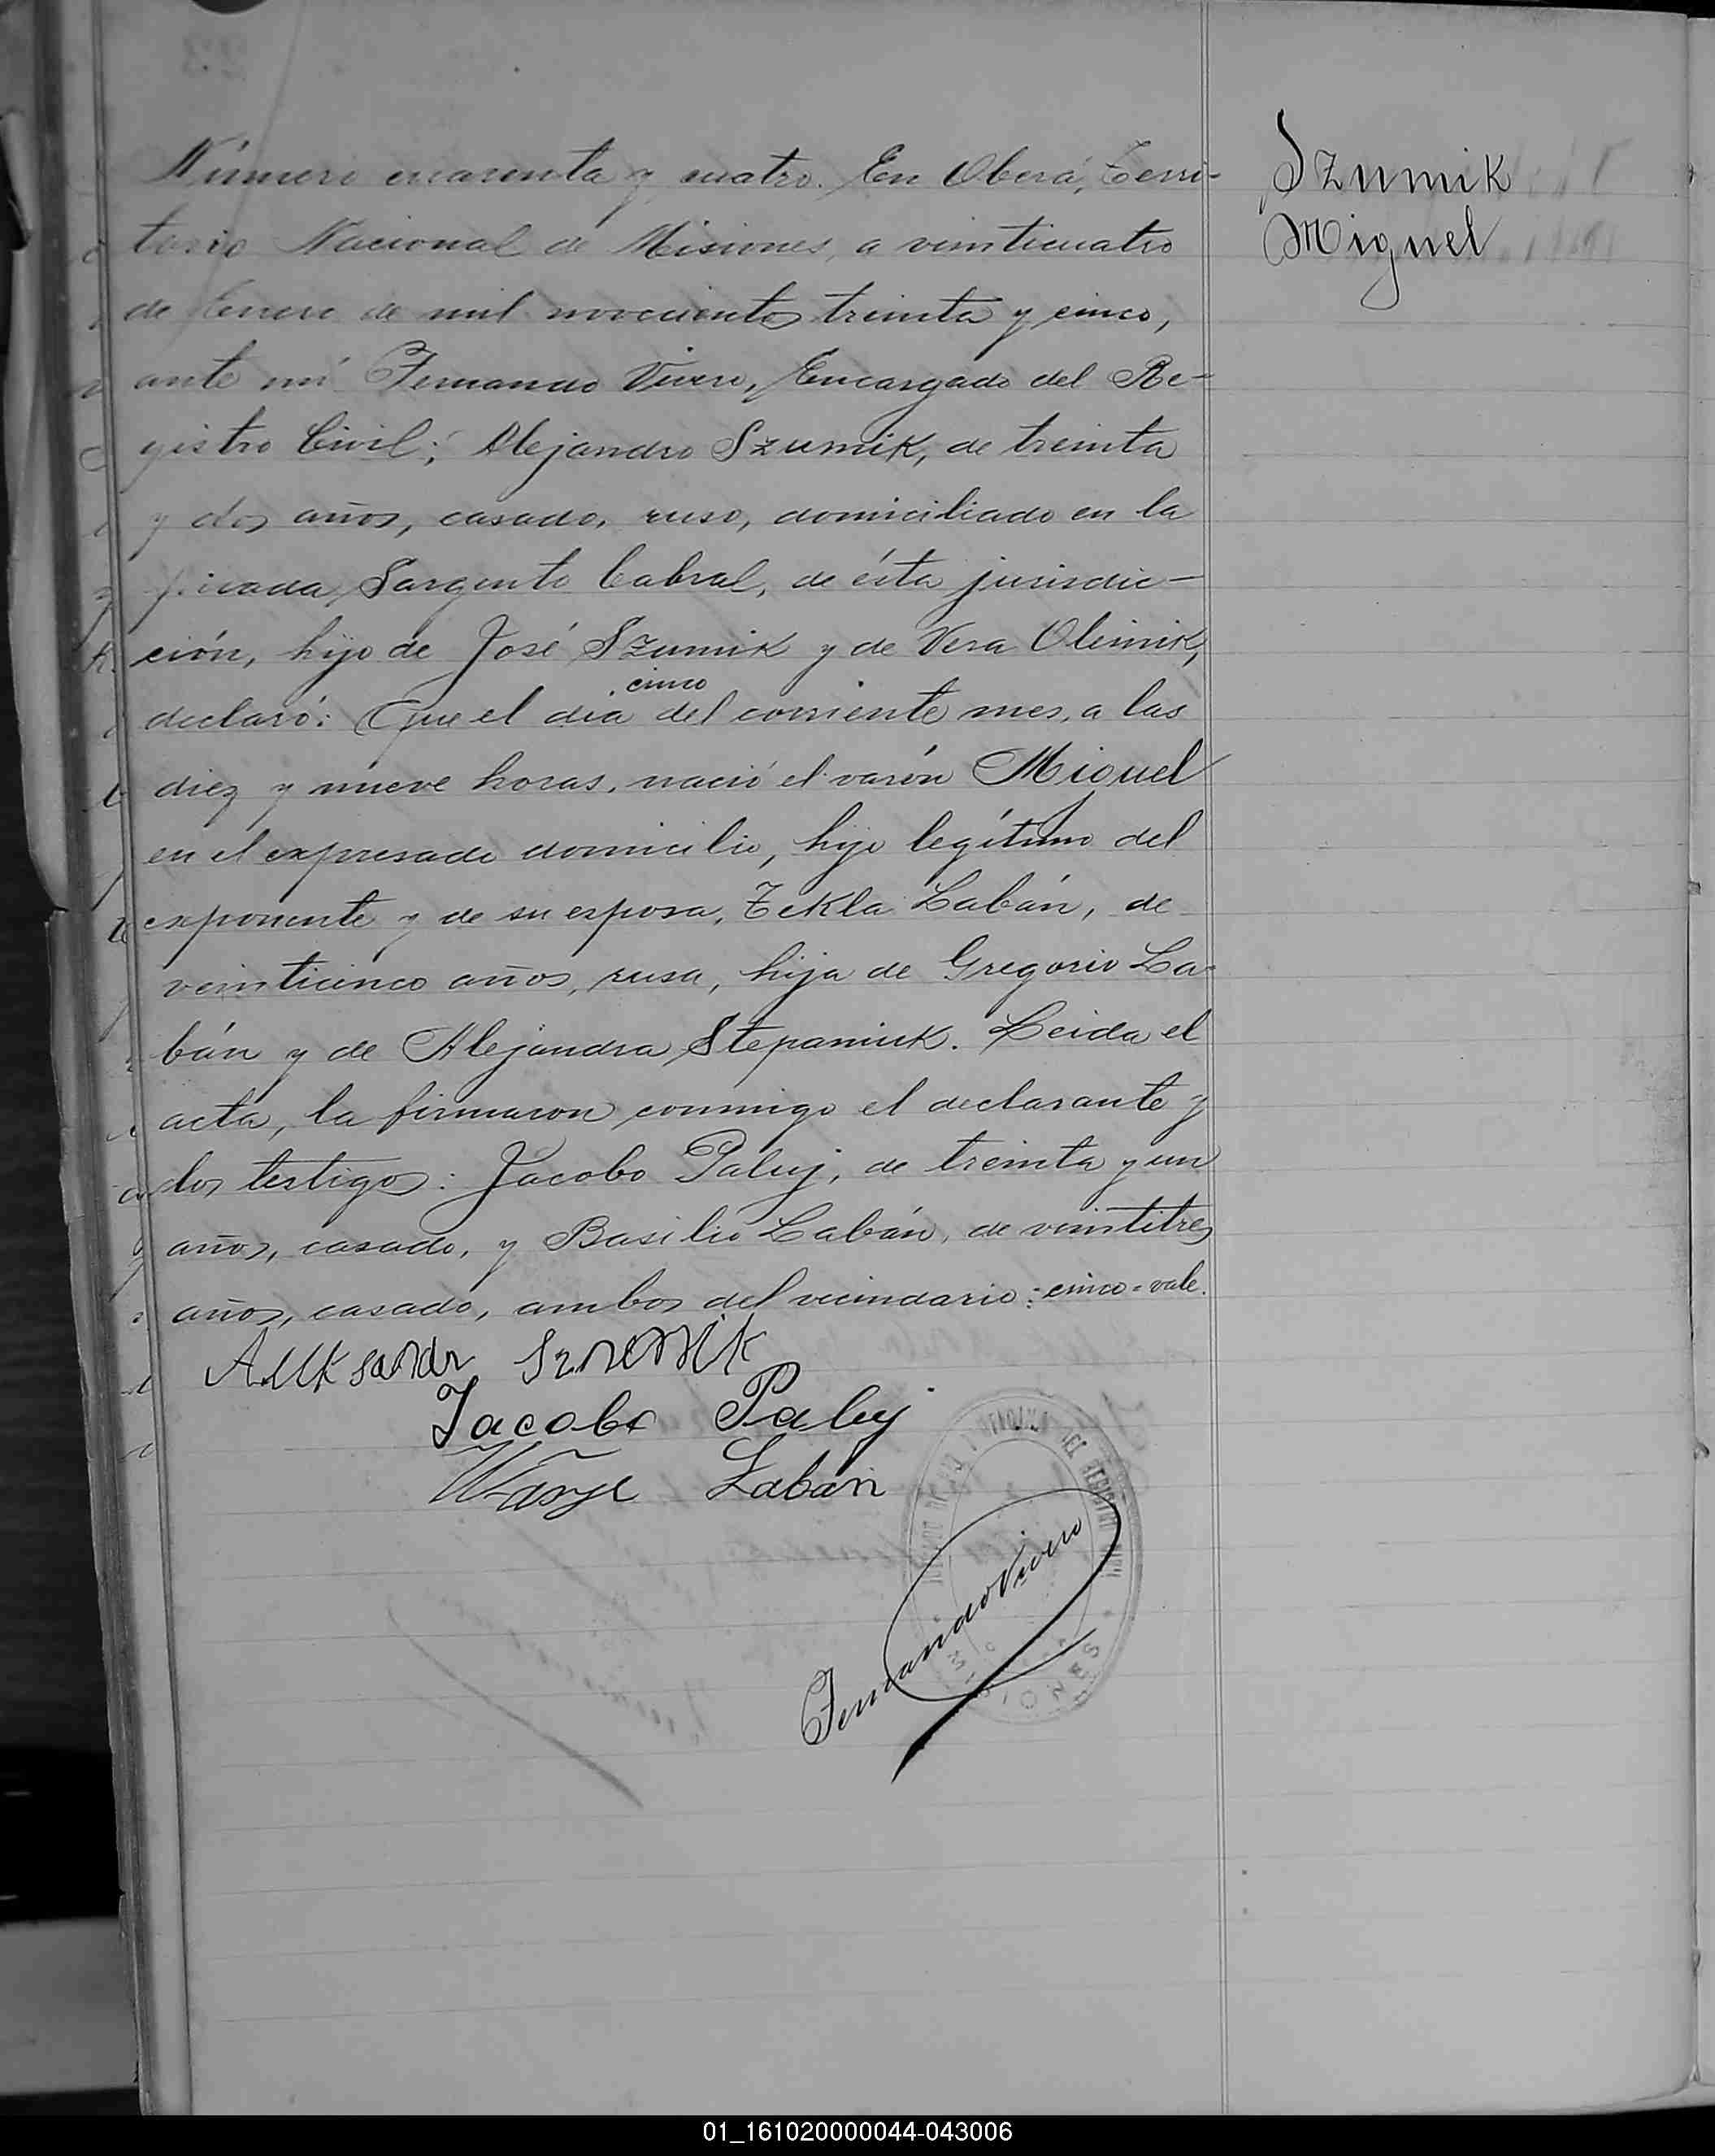 Szumik
Miguel
Número cuarenta y cuatro. En Oberá, Terri-
torio Nacional de Misiones, a veinticuatro
de Enero de mil novecientos treinta y cinco,
ante mí Fernando Vivero, Encargado del Re-
gistro Civil; Alejandro Szumik, de treinta
y dos años, casado, ruso, domiciliado en la
picada Sargento Cabral, de ésta jurisdic-
ción, hijo de José Szumik y de Vera Olinik,
cinco
declaró: Que el día del corriente mes, a las
diez y nueve horas, nació el varón Miguel
en el expresado domicilio, hijo legítimo del
exponente y de su esposa, Tekla Labán, de
veinticinco años, rusa, hija de Gregorio La-
bán y de Alejandra Stepaniuk. Leida el
acta, la firmaron conmigo el declarante y
los testigos: Jacobo Paluj, de treinta y un
años, casado, y Basilio Labán, de veintitres
años, casado, ambos del vecindario: cinco=vale.
Szumik
Jacobo Paluj
Labán
REGISTRO CIVIL
MISIONES
Fernando Vivero
01_161020000044-043006